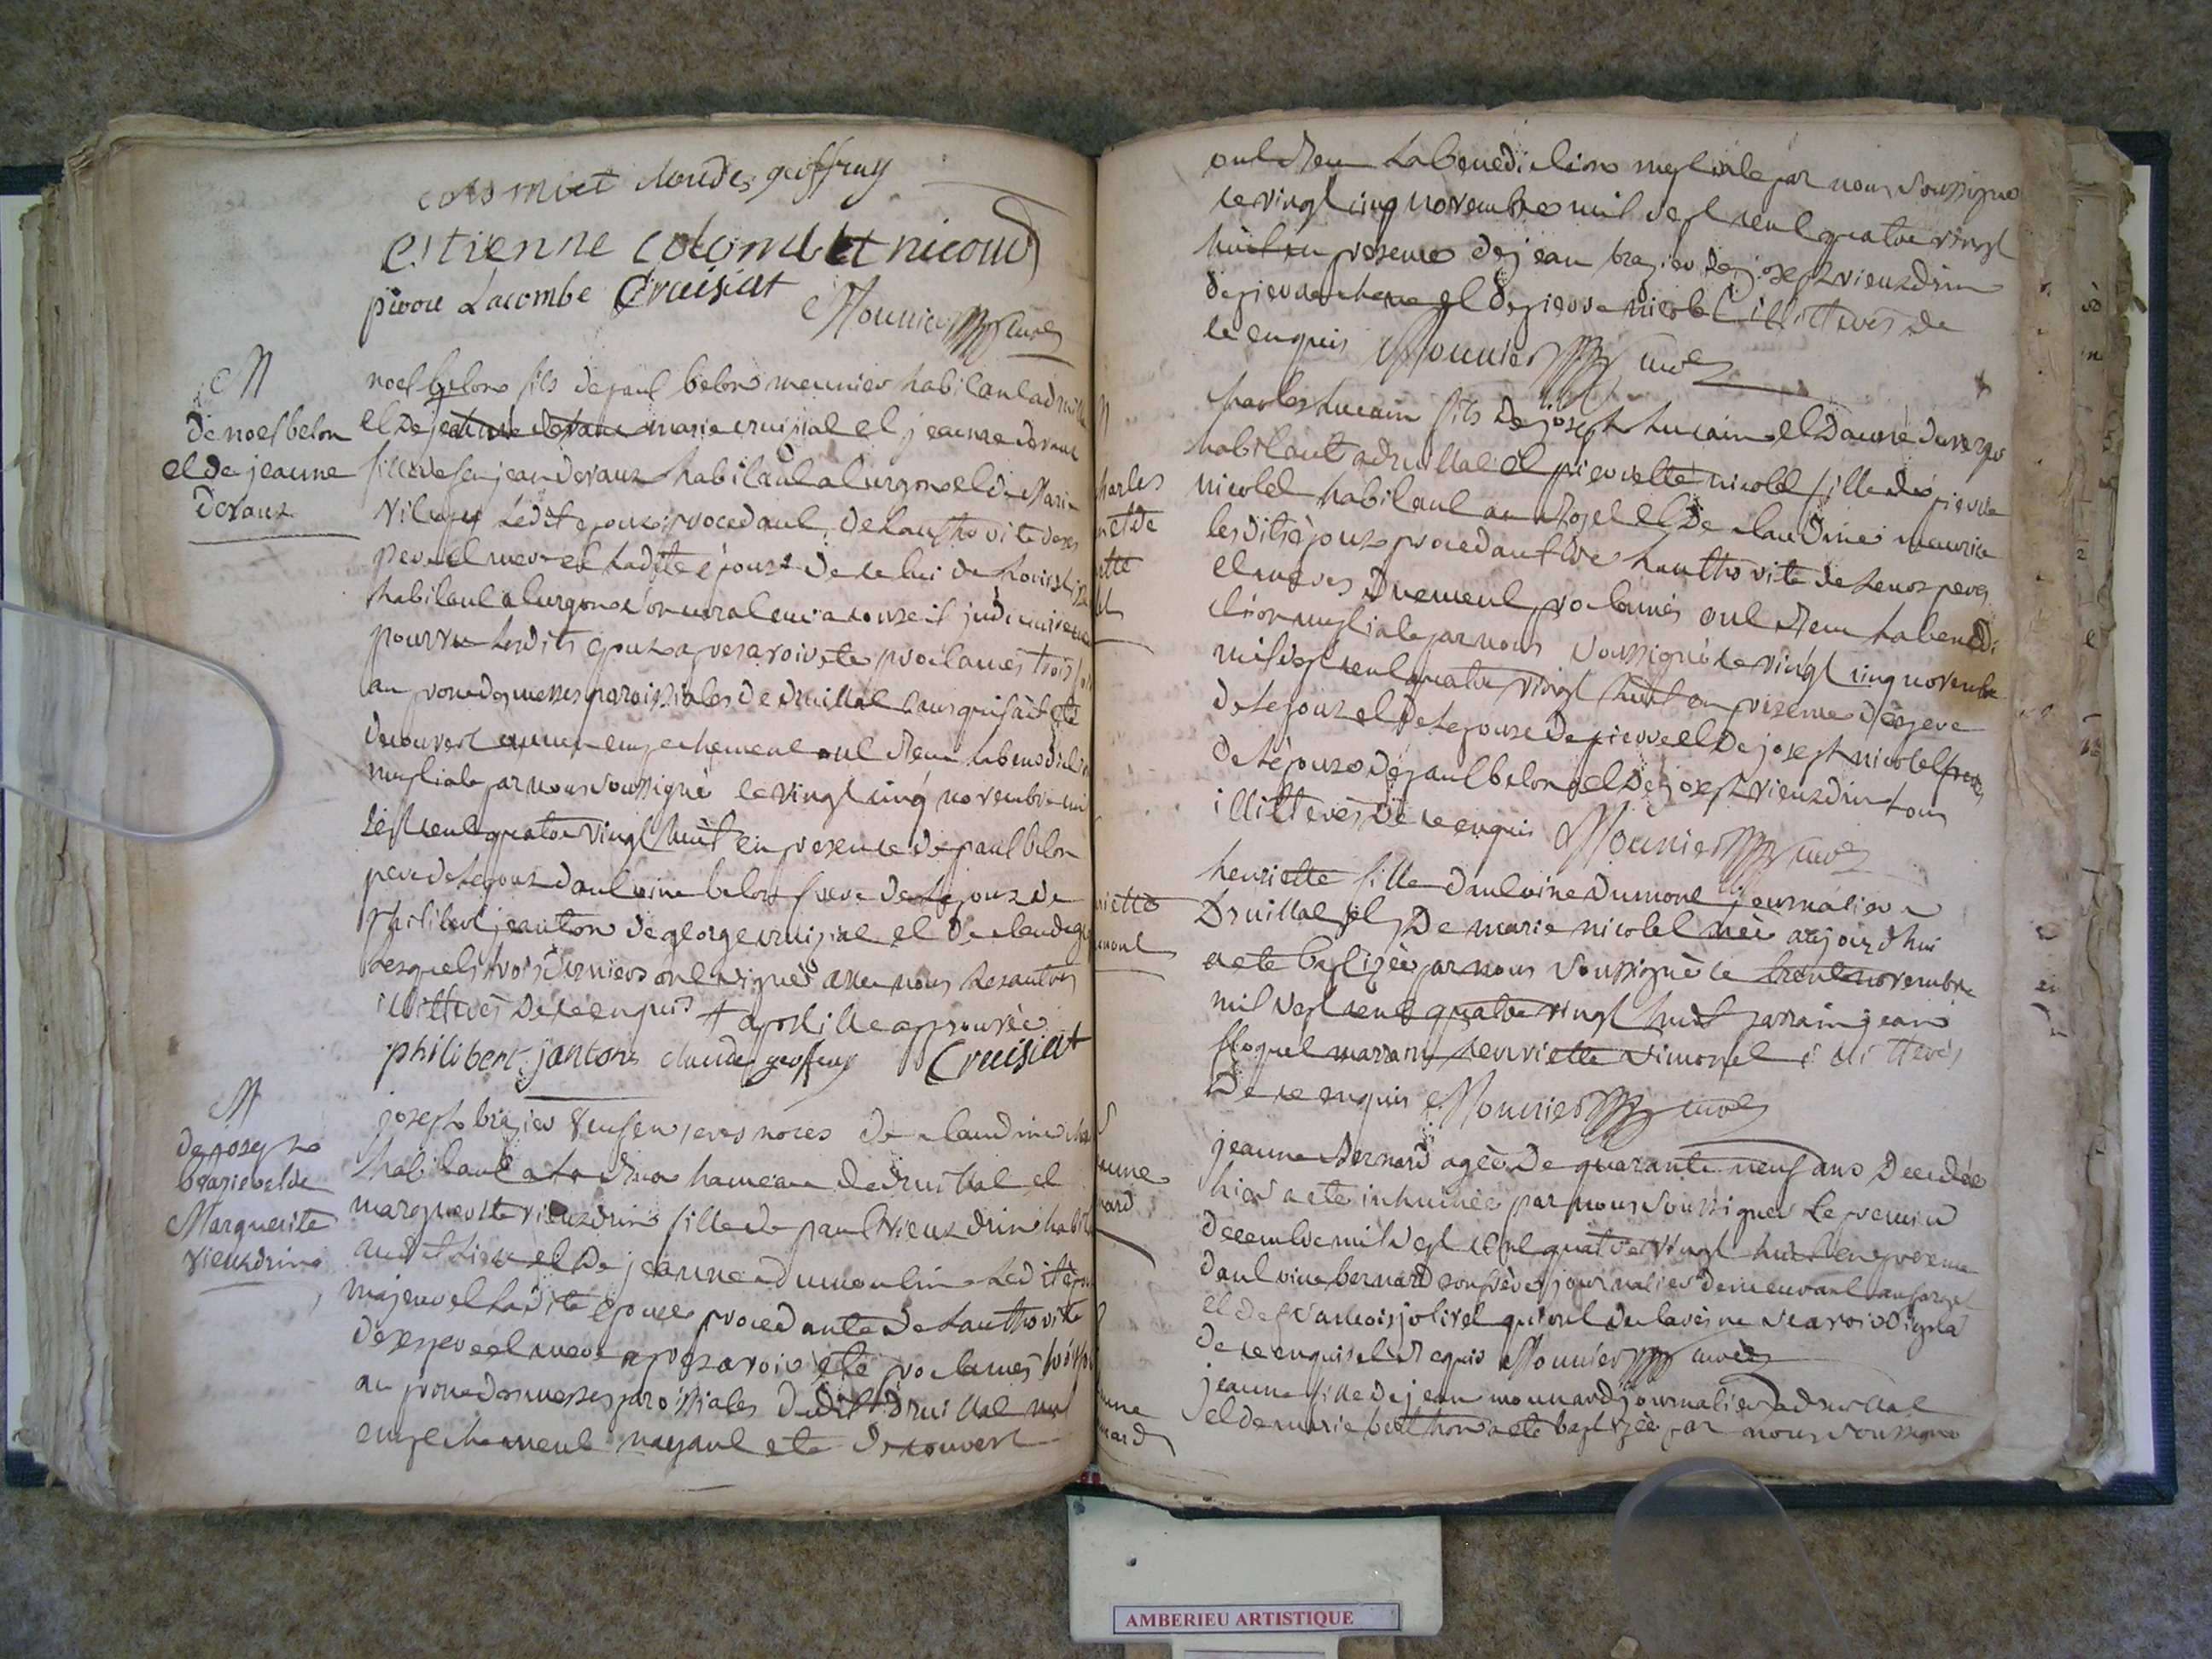 claude geoffray
estienne colombet nicoud
pierre Lacombe Cruisiat
Mounier curé
M
de noel belon
et de jeanne
devaux
noel belon fils de paul belon meunier habitant a druillat
et de marie cruisiat et jeanne devaux
fille de feu jean devaux habitant a turgon et de Marie
ledit epoux procedant de lauthorité de ses
pere et mere et ladite épouse de celui de
habitant a turgon conseil judiciairement
pourvu lesdits epoux apres avoir été proclamés trois fois
au prone des messes paroissiales de druillat sans quil ait été
decouvert aucun empechement ont recu la benediction
nuptiale par nous soussigné le vingt cinq novembre mil
sept cent quatre vingt huit en presence de paul belon
pere de lepoux dantoine belon frere de lepoux de
philibert jeanton de george cruisiat et de claude
lesquels trois derniers ont signés avec nous les autres
illitterés de ce enquis + apostille approuvée
philibert jantons claude geoffray Cruisiat
M
de joseph
brazier et de
Marguerite
vieudrin
joseph brazier veuf en noces de claudine
habitant a hameau de druillat et
marguerite vieudrin fille de paul vieudrin habitant
audit lieu et de jeanne dumoulin ledit époux
majeur et ladite épouse procedante de lauthorité
de ses pere et mere apres avoir été proclamés trois fois
au prone des messes paroissiales dudit druillat nul
empechement nayant eté decouvert
ont recu la benediction nuptiale par nous soussigné
le vingt cinq novembre mil sept cent quatre vingt
huit en presence de jean brazier de joseph vieudrin
de pierre et de pierre nicolet illitterés de
ce enquis Mounier curé
harles
et de
ette
charles lucain fils de joseph lucain et
habitant a druillat et pierrette nicolet fille de pierre
nicolet habitant au et de claudine meurier
lesdits époux procedant de lauthorité de leurs peres
et meres duement proclamés ont recu la bénedi
ction nuptiale par nous soussigné le vingt cinq novembre
mil sept cent quatre vingt huit en presence des pere
de lepoux et de lepouse de pierre et de joseph nicolet freres
de lépouse de paul belon et de joseph vieudrin tous
illitterés de ce enquis Mounier curé
riette
mont
henriette fille dantoine dumont journalier a
Druillat et de marie nicolet née aujourdhui
a eté baptizée par nous soussigné le trente novembre
mil sept cent quatre vingt huit parrain jean
floquet marraine henriette simonet illitterés
de ce enquis Mounier curé
S
anne
nard
jeanne bernard agée de quarante neuf ans decedée
hier a eté inhumée par nous soussigné le premier
decembre mil sept cent quatre vingt huit en presence
dantoine bernard son frère journalier demeurant
et de francois jolivet qui ont declarés ne scavoir signer
de ce enquis et requis Mounier curé
anne
nard
jeanne fille de jean mounard journalier a druillat
et de marie berthon a eté baptizée par nous soussigné
AMBERIEU ARTISTIQUE